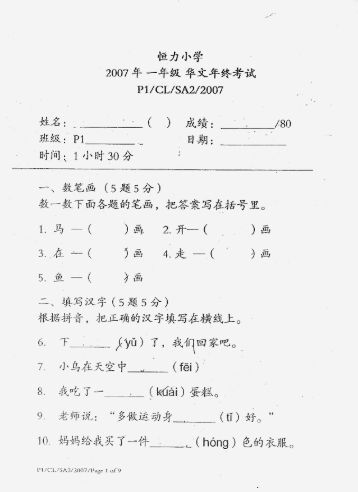 恒力小学
2007 年 一年级 华文年终考试
P1/CL/SA2/2007
姓名：____________ (    ) 成绩：________/80
班级：P1________ 日期：____________
时间：1 小时 30 分
一、数笔画（5 题 5 分）
数一数下面各题的笔画，把答案写在括号里。
1. 马 —（    ）画 2. 开—（    ）画
3. 在 —（    ）画 4. 走 —（    ）画
5. 鱼 —（    ）画
二、填写汉字（5 题 5 分）
根据拼音，把正确的汉字填写在横线上。
6. 下________（yǔ）了，我们回家吧。
7. 小鸟在天空中________（fēi）
8. 我吃了一________（kuài）蛋糕。
9. 老师说：“多做运动身________（tǐ）好。”
10. 妈妈给我买了一件________（hóng）色的衣服。
P1/CL/SA2/2007/Page 1 of 9